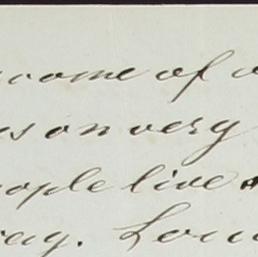 oome of a
son very
eople live
ay. Lou